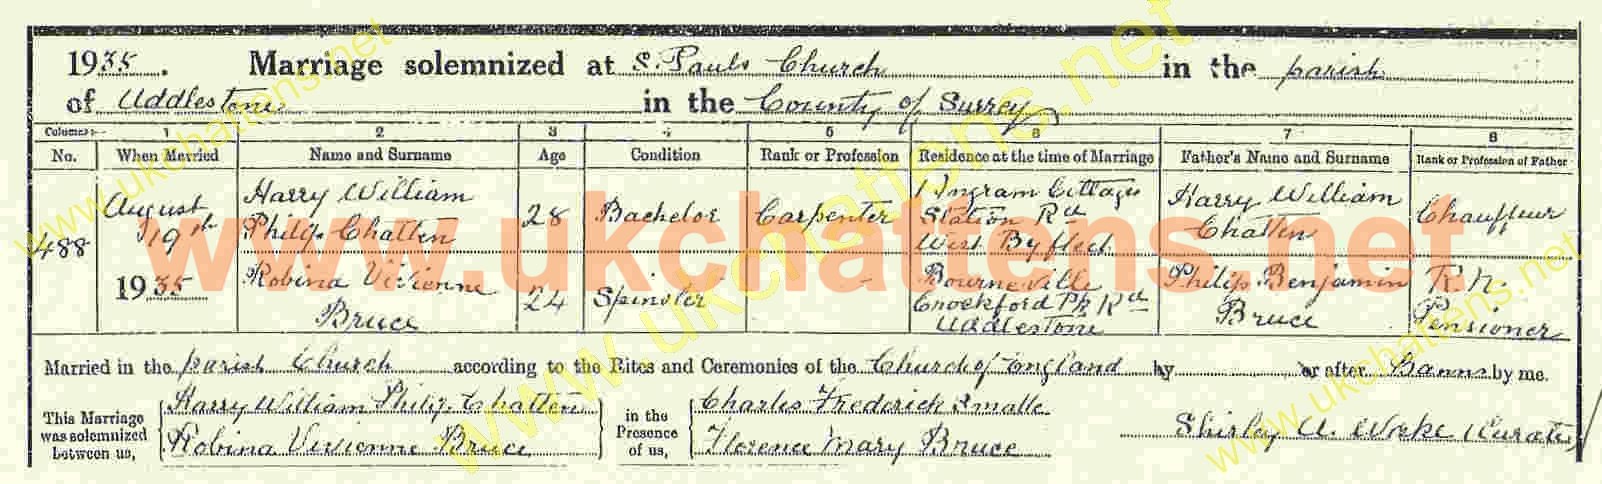 1935. Marriage solemnized at S. Pauls Church in the parish
of Addlestone in the County of Surrey
Columns:- 1 2 3 4 5 6 7 8
No. When Married Name and Surname Age Condition Rank or Profession Residence at the time of Marriage Father's Name and Surname Rank or Profession of Father
488 August 19th 1935
Harry William Philip Chatten 28 Bachelor Carpenter 1 Ingram Cottages Station Rd West Byfleet Harry William Chatten Chauffeur
Robina Vivienne Bruce 24 Spinster - Bourneville Crockford Pk Rd Addlestone Philip Benjamin Bruce R.N. Pensioner
Married in the parish Church according to the Rites and Ceremonies of the Church of England by or after Banns by me.
This Marriage was solemnized between us, Harry William Philip Chatten Robina Vivienne Bruce in the Presence of us, Charles Frederick Florence Mary Bruce Shirley A. (Curate)
www.ukchattens.net
www.ukchattens.net
www.ukchattens.net
www.ukchattens.net
www.ukchattens.net